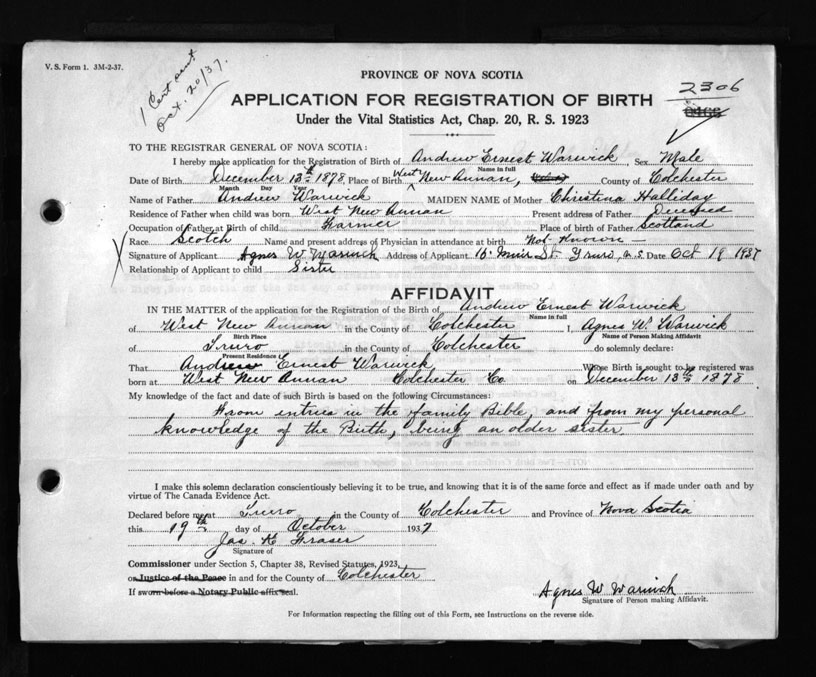 V. S. Form 1. 3M-2-37.
1 Cert sent
Oct. 20/37.
PROVINCE OF NOVA SCOTIA
2306
APPLICATION FOR REGISTRATION OF BIRTH
Under the Vital Statistics Act, Chap. 20, R. S. 1923
TO THE REGISTRAR GENERAL OF NOVA SCOTIA:
I hereby make application for the Registration of Birth of Andrew Ernest Warwick, Sex Male
Name in full
Date of Birth December 13th 1878 Place of Birth West New Annan, County of Colchester
Month Day Year
Name of Father Andrew Warwick MAIDEN NAME of Mother Christina Halliday
Residence of Father when child was born West New Annan Present address of Father Deceased
Occupation of Father at Birth of child Farmer Place of birth of Father Scotland
Race Scotch Name and present address of Physician in attendance at birth Not Known
Signature of Applicant Agnes W Warwick Address of Applicant 16 Muir St. Truro, N.S. Date Oct 19 1937
Relationship of Applicant to child Sister
AFFIDAVIT
IN THE MATTER of the application for the Registration of the Birth of Andrew Ernest Warwick
Name in full
of West New Annan in the County of Colchester I, Agnes W. Warwick
Birth Place Name of Person Making Affidavit
of Truro in the County of Colchester do solemnly declare:
Present Residence
That Andrew Ernest Warwick Whose Birth is sought to be registered was
born at West New Annan Colchester Co on December 13th 1878
My knowledge of the fact and date of such Birth is based on the following Circumstances:
From entries in the family Bible, and from my personal
knowledge of the Birth, being an older sister.
I make this solemn declaration conscientiously believing it to be true, and knowing that it is of the same force and effect as if made under oath and by
virtue of The Canada Evidence Act.
Declared before me at Truro in the County of Colchester and Province of Nova Scotia
this 19th day of October 1937
Jas. H Fraser
Signature of
Commissioner under Section 5, Chapter 38, Revised Statutes, 1923,
or Justice of the Peace in and for the County of Colchester
If sworn before a Notary Public affix seal.
Agnes W Warwick
Signature of Person making Affidavit.
For Information respecting the filling out of this Form, see Instructions on the reverse side.